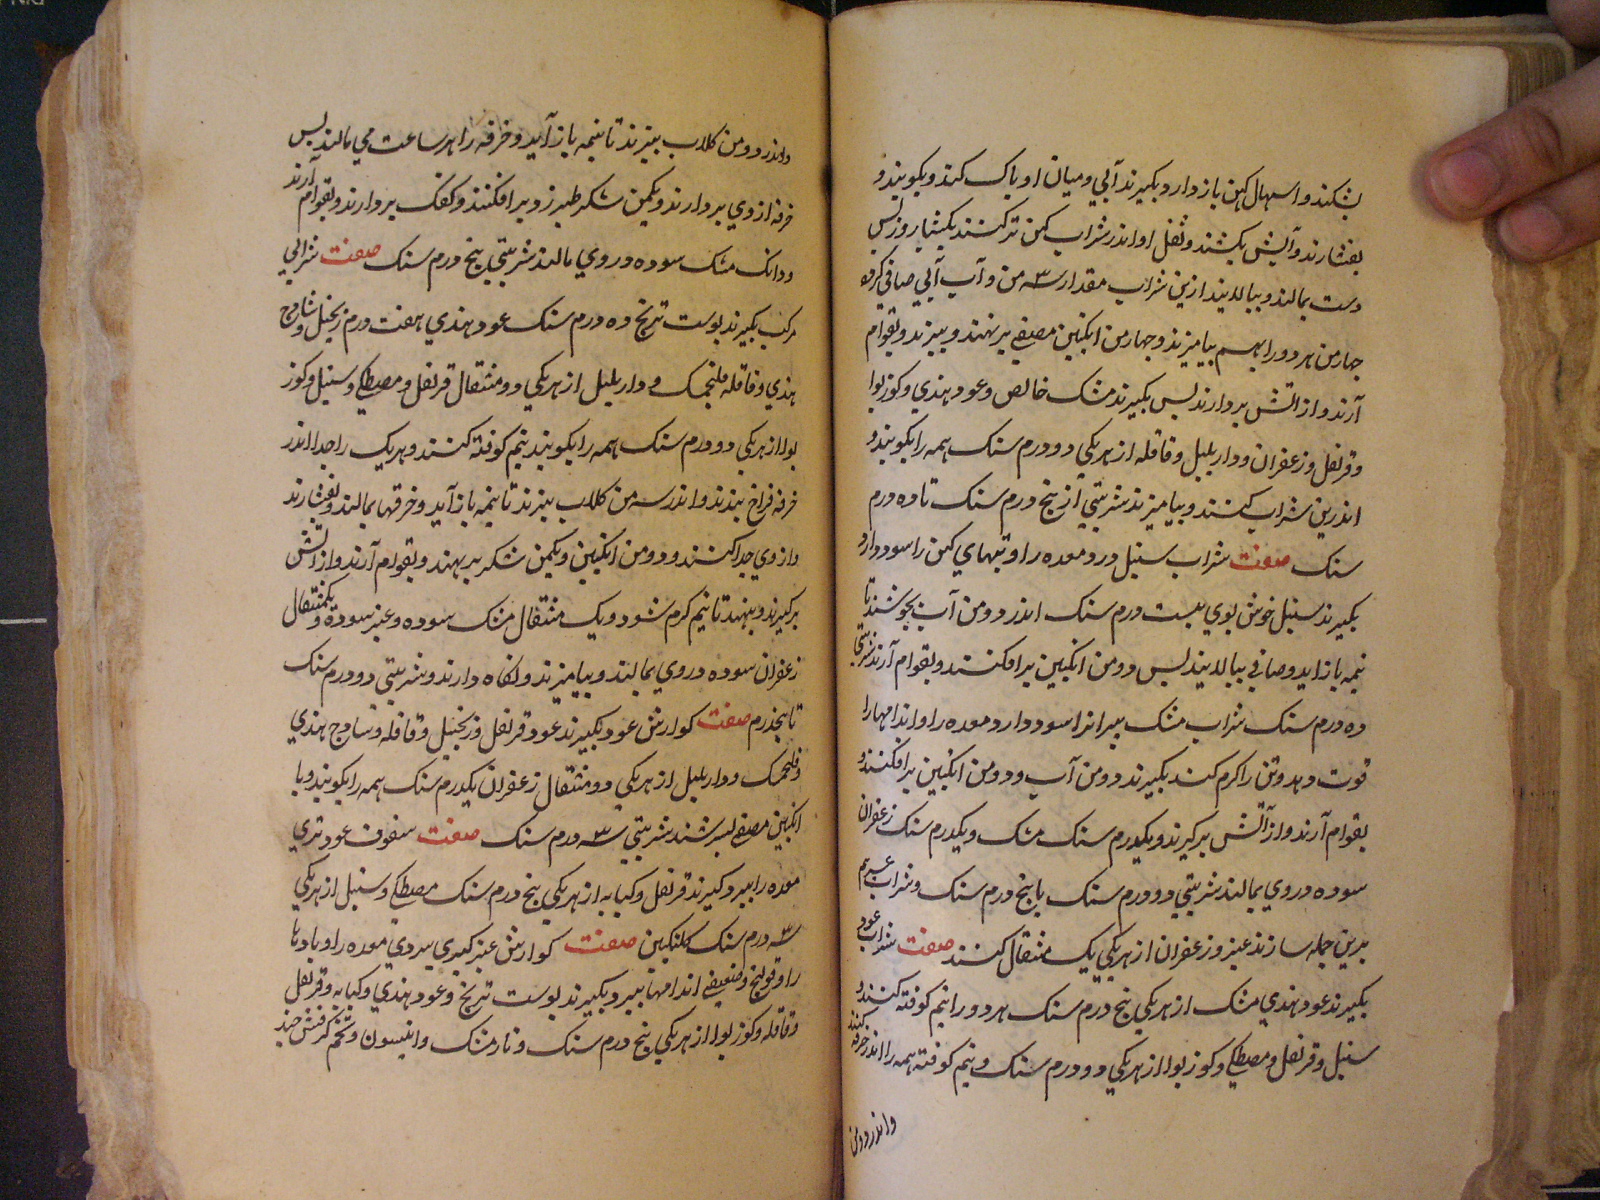 بشکند و اسهال کهن باز دارد بگیرند آبی و میان او پاک کنند و بکوبند و
بفشارند و آبش بکشند و ثفل او اندر شراب کهن تر کنند یکشبانروز پس
دست بمالند و ببالایند ازین شراب مقدار سه من و آب آبی صافی کرده
چهار من هر دو را بهم بیامیزند و چهار من انگبین مصفی بر نهند و بپزند و بقوام
آرند و از آتش بردارند پس بگیرند مشک خالص و عود هندی و کوز بوا
و قرنفل و زعفران و دار بلبل و قاقله از هر یکی دو درم سنک همه را بکوبند و
اندرین شراب کنند و بیامیزند شربتی از پنج درم سنک تا ده درم
سنک صفت شراب سنبل درد معده را و تبهای کهن را سود دارد
بگیرند سنبل خوش بوی بیست درم سنک اندر دو من آب بجوشند تا
نیمه باز آید و صافی ببالایند پس دو من انگبین برافکنند و بقوام آرند شربتی
ده درم سنک شراب مشک پیرانرا سود دارد و معده را و اندامها را
قوت دهد و تن را گرم کند بگیرند دو من آب و دو من انگبین برافکنند و
بقوام آرند و از آتش برگیرند و یکدرم سنک مشک و یکدرم سنک زعفران
سوده در وی بمالند شربتی دو درم سنک یا پنج درم سنک و شراب عنبر هم
برین جمله سازند عنبر و زعفران از هر یکی یک مثقال کنند صفت شراب عود
بگیرند عود هندی مشک از هر یکی پنج درم سنک هر دو را نیم کوفته کنند و
سنبل و قرنفل و مصطکی و کوز بوا از هر یکی دو درم سنک و نیم کوفته همه را اندر خرقه کنند
و اندر دو من
و اندر دو من کلاب بپزند تا نیمه باز آید و خرقه را هر ساعت می مالند پس
خرقه از وی بردارند و یکمن شکر طبرزد برافکنند و کفک بردارند و بقوام آرند
و دانک مشک سوده در وی مالند شربتی پنج درم سنک صفت شرابی
مرکب بگیرند پوست ترنج ده درم سنک عود هندی هفت درم زنجبیل و ساذج
هندی و قاقله فلنجمشک و دار بلبل از هر یکی دو مثقال قرنفل و مصطکی و سنبل و کوز
بوا از هر یکی دو درم سنک همه را بکوبند نیم کوفته کنند و هر یک را جدا اندر
خرقه فراخ بندند و اندر سه من کلاب بپزند تا نیمه باز آید و خرقها بمالند و بفشارند
و از وی جدا کنند و دو من انگبین و یکمن شکر بر نهند و بقوام آرند و از آتش
برگیرند و بنهند تا نیم گرم شود و یک مثقال مشک سوده و عنبر سوده و یکمثقال
زعفران سوده در وی بمالند و بیامیزند و نگاه دارند و شربتی دو درم سنک
تا پنجدرم صفت کوارش عود بگیرند عود و قرنفل و زنجبیل و قاقله و ساذج هندی
و فلنجمشک و دار بلبل از هر یکی دو مثقال زعفران یکدرم سنک همه را بکوبند و با
انگبین مصفی بسرشند شربتی سه درم سنک صفت سفوف عود تری
معده را ببرد گیرند قرنفل و کبابه از هر یکی پنج درم سنک مصطکی و سنبل از هر یکی
سه درم سنک کلنگبین صفت کوارش عنبر کبری سردی معده را و بادها
را و قولنج و ضعیفی اندامها ببرد بگیرند پوست ترنج و عود هندی و کبابه و قرنفل
و قاقله و کوز بوا از هر یکی پنج درم سنک و نارمشک و انیسون و تخم کرفس